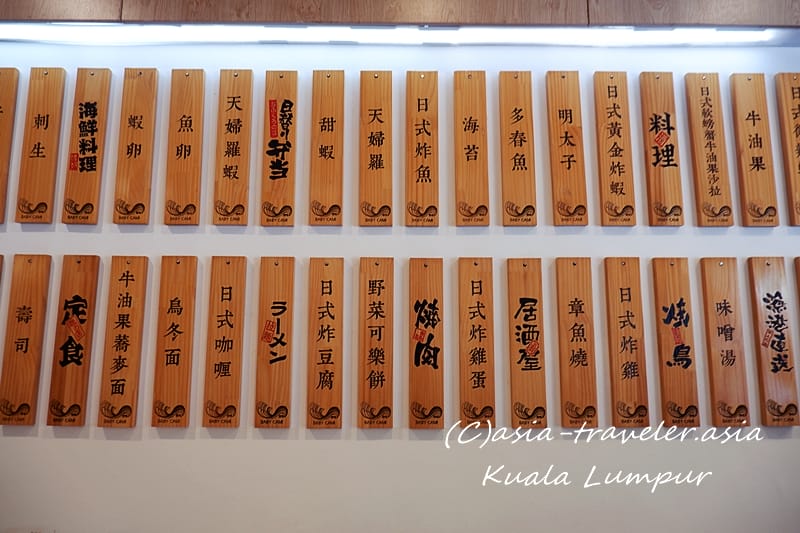 刺生
海鮮料理
蝦卵
魚卵
天婦羅蝦
日替り弁当
甜蝦
天婦羅
日式炸魚
海苔
多春魚
明太子
日式黃金炸蝦
料理
日式軟螃蟹牛油果沙拉
牛油果
壽司
定食
牛油果蕎麥面
烏冬面
日式咖喱
ラーメン
日式炸豆腐
野菜可樂餅
燒肉
日式炸雞蛋
居酒屋
章魚燒
日式炸雞
燒鳥
味噌湯
漁港直送
BABY CAVE
(C)asia-traveler.asia
Kuala Lumpur